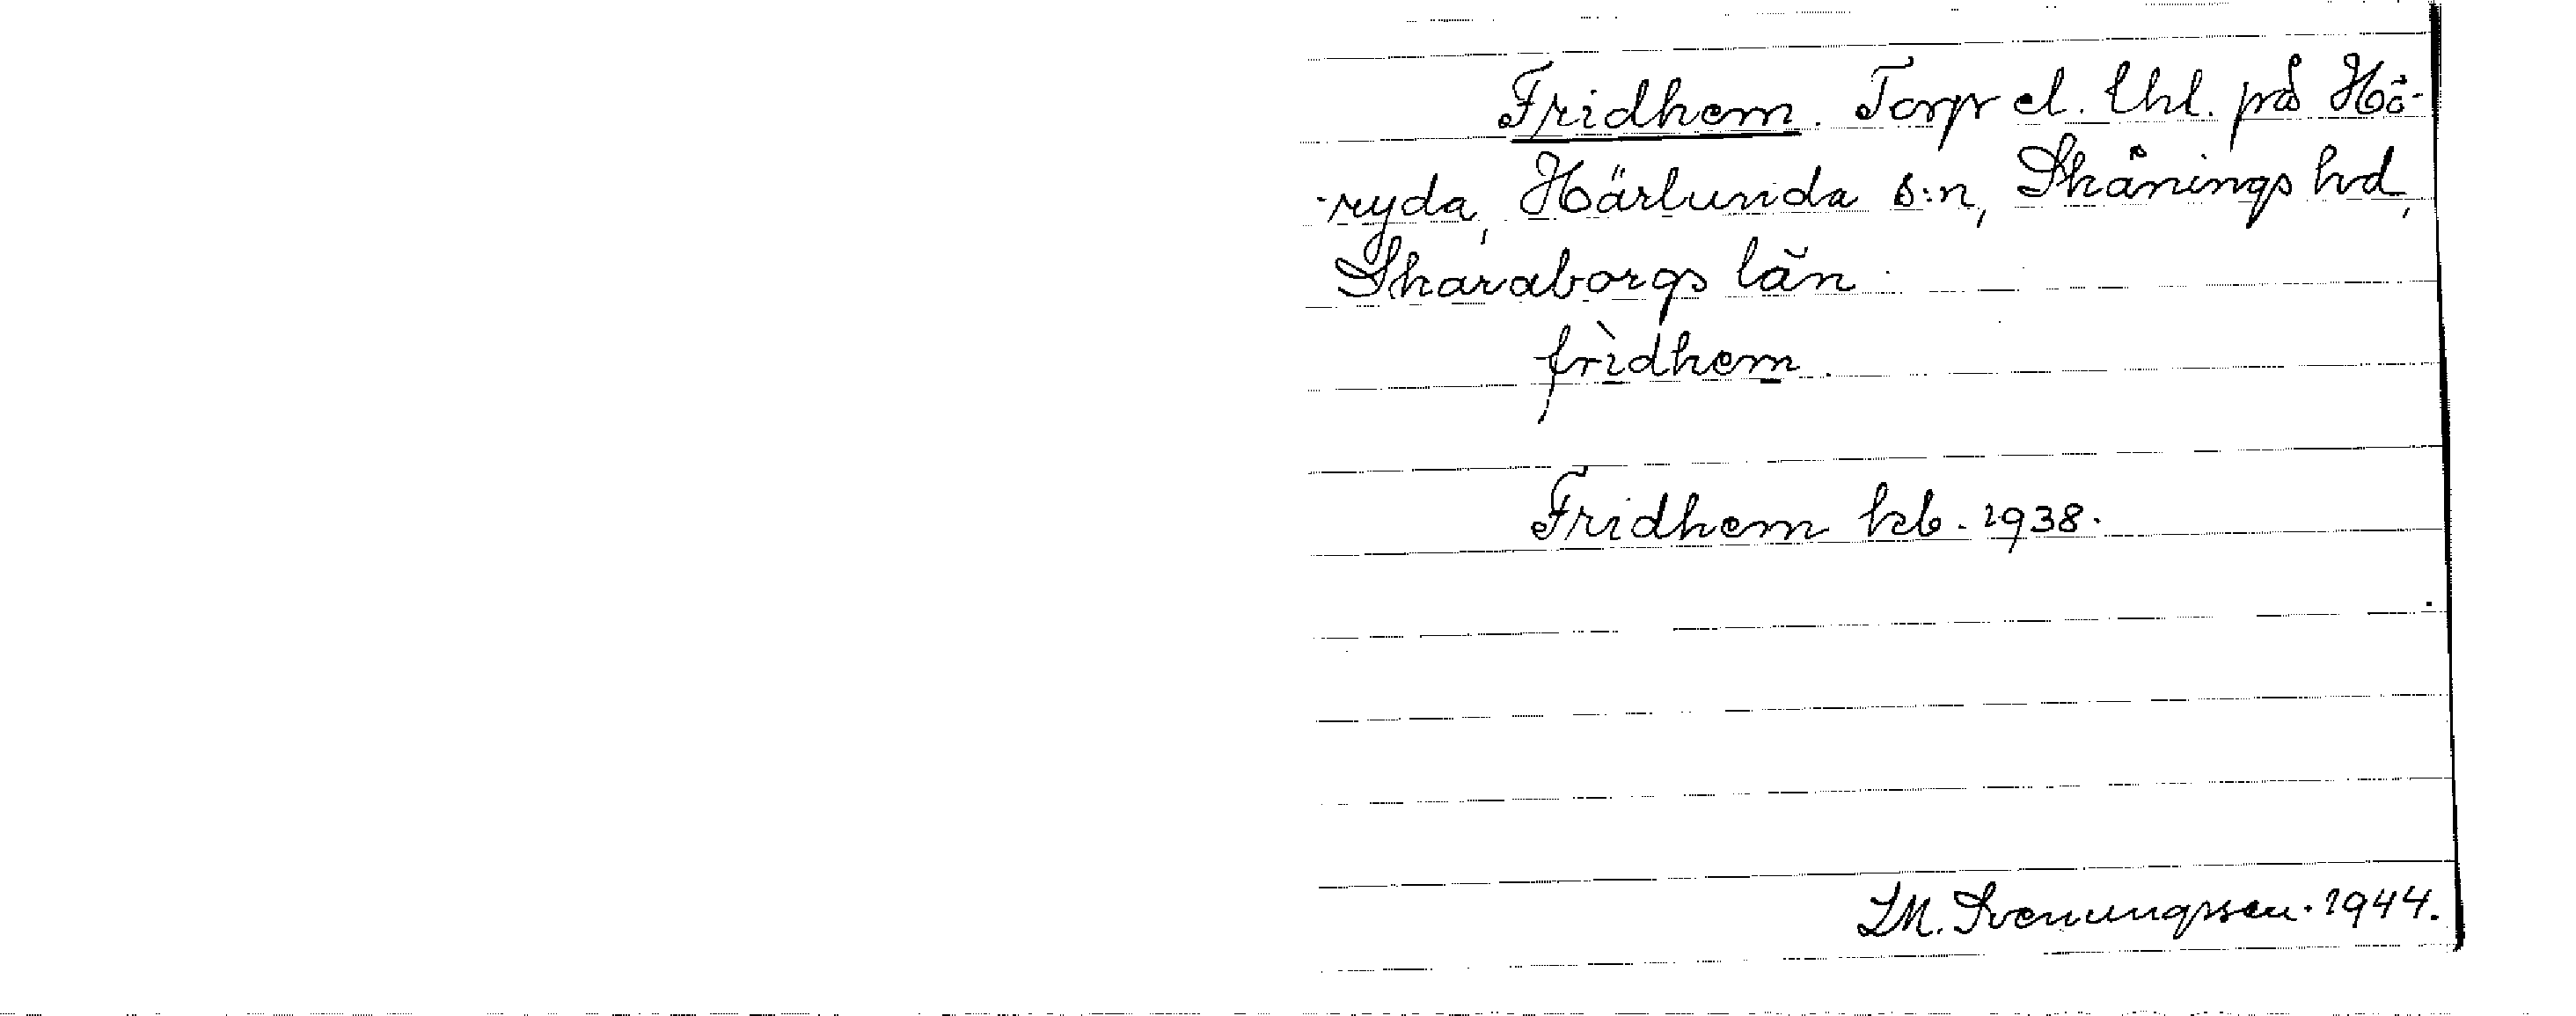 Fridhem. Torp el. lhl. på Hö-
-ryda, Härlunda s:n, Skånings hd,
Skaraborgs län.
frìdhem.
Fridhem kb. 1938.
LM. Svenungsson. 1944.